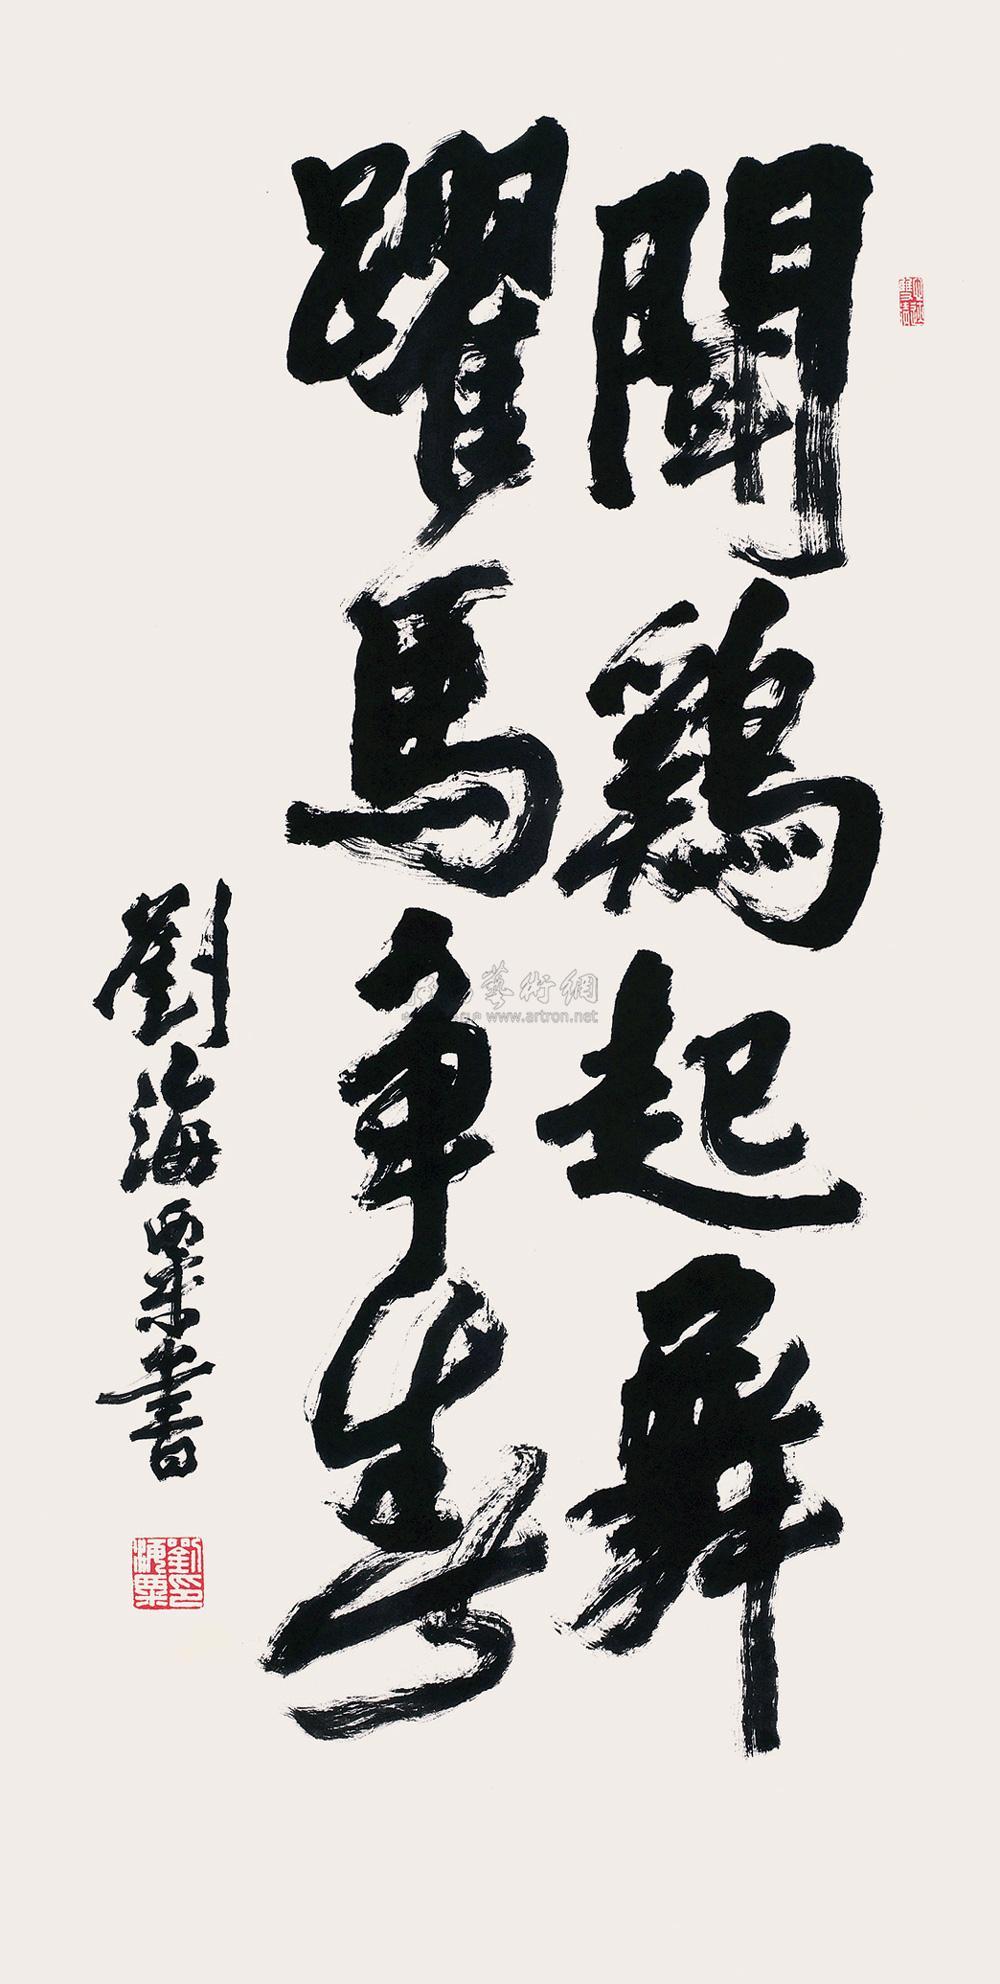 聞鷄起舞
躍馬争春
劉海粟書
劉海粟印
藝術網
www.artron.net